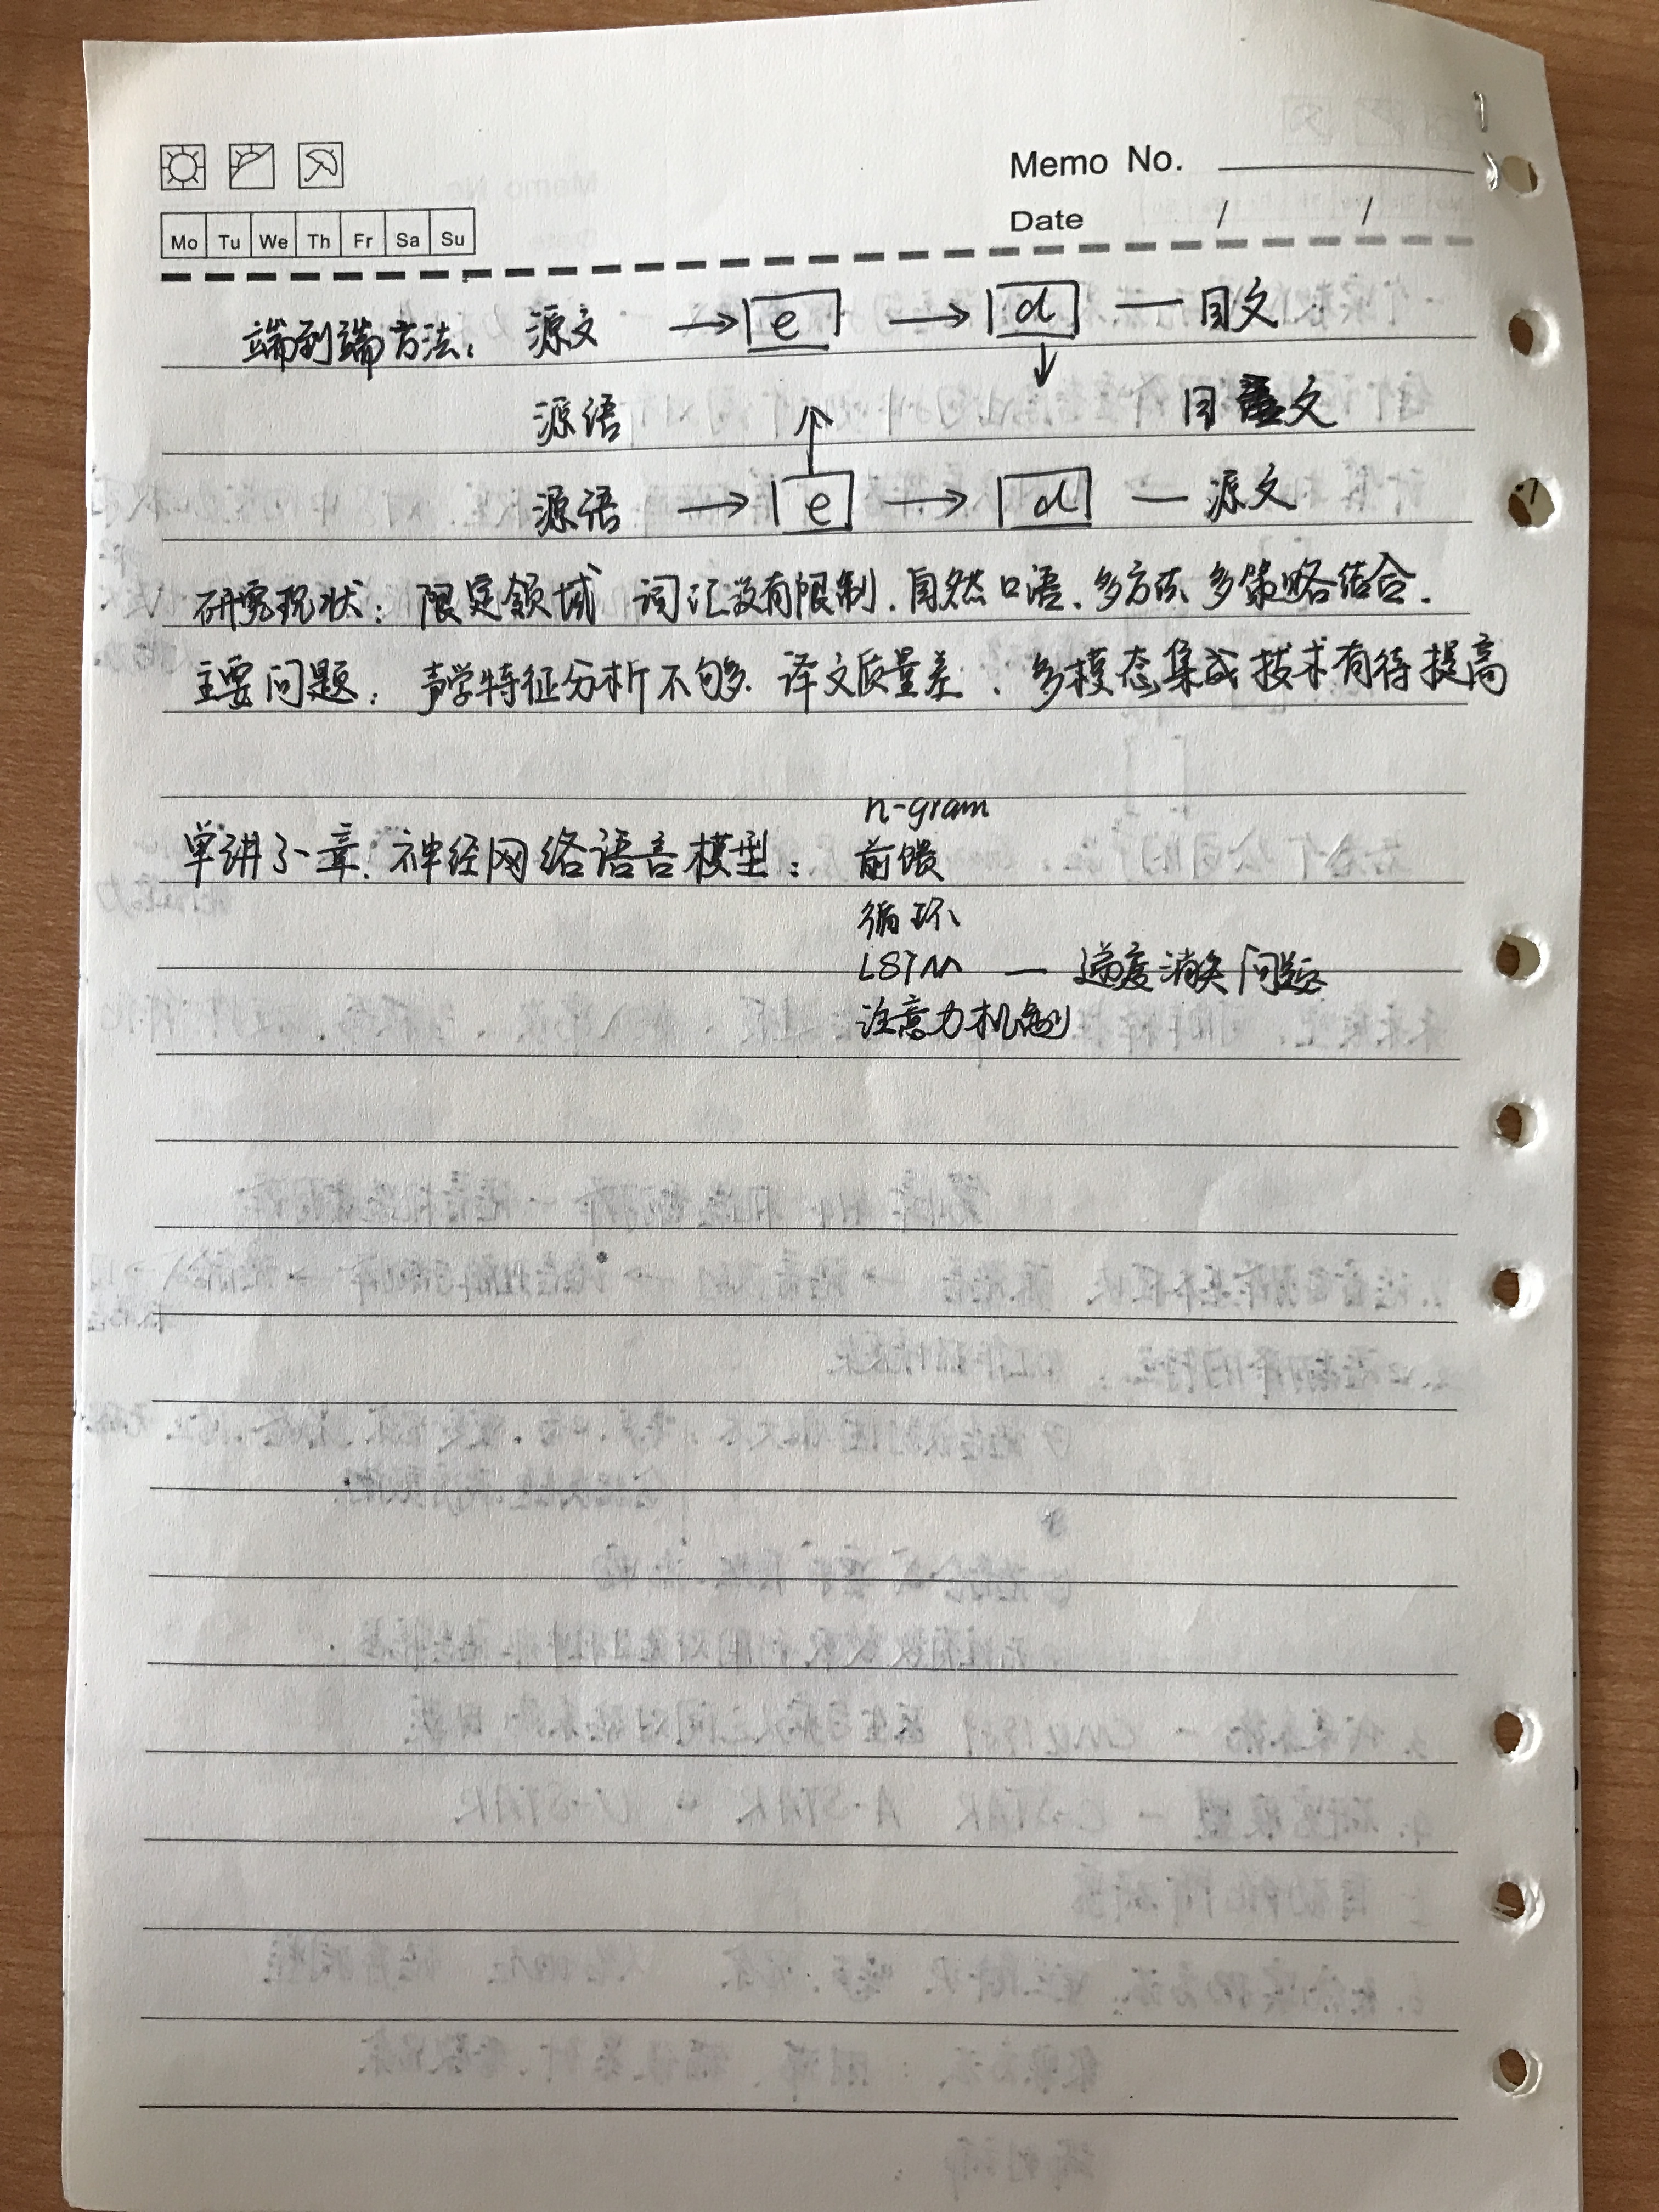 Memo No.
Date / /
Mo Tu We Th Fr Sa Su
端到端方法: 源文 → e → d — 目文
源语 目文
源语 → e → d — 源文
研究现状: 限定领域 词汇没有限制、自然口语、多方法 多策略结合.
主要问题: 声学特征分析不够、译文质量差、多模态集成技术有待提高
n-gram
单讲了一章、神经网络语言模型: 前馈
循环
LSTM — 消失问题
注意力机制